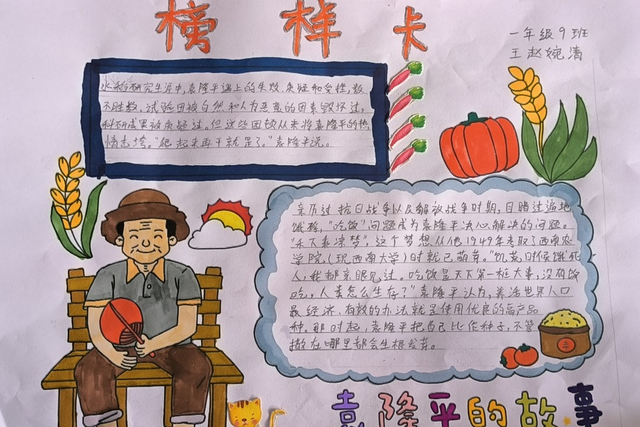 榜样卡
一年级9班
王赵婉清
水稻研究生涯中,袁隆平遇上的失败,质疑和变挫,数
不胜数,试验田被自然和人为恶意的因素毁坏过,
科研成果被质疑过。但这些困难从未将袁隆平的热
情击垮。"爬起来再干就是了。"袁隆平说。
亲历过抗日战争以及解放战争时期,目睹过遍地
饿殍,"吃饭"问题成为袁隆平决心解决的问题。
"禾下乘凉梦",这个梦想从他1949年考取了西南农
学院(现西南大学)时就已萌芽。"饥荒时候饿死
人,我都亲眼见过。吃饭是天下第一桩大事,没有饭
吃,人类怎么生存?"袁隆平认为,养活世界人口
最经济、有效的办法就是使用优良的高产品
种,那时起,袁隆平把自己比作种子,不管
撒在哪里都会生根发芽。
袁隆平的故事